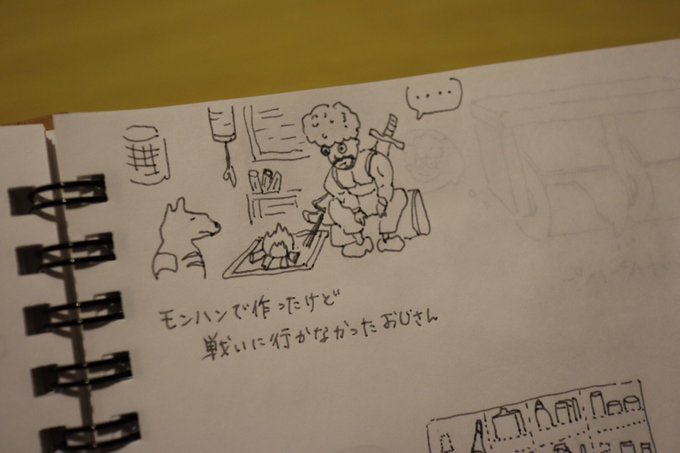 ....
モンハンで作ったけど
戦いに行かなかったおじさん